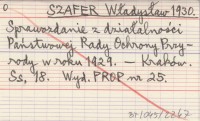 0 SZAFER Władysław 1930.
Sprawozdanie z działalności
Państwowej Rady Ochrony Przy-
rody w roku 1929. — Kraków.
Ss, 18. Wyd. PROP nr 25.